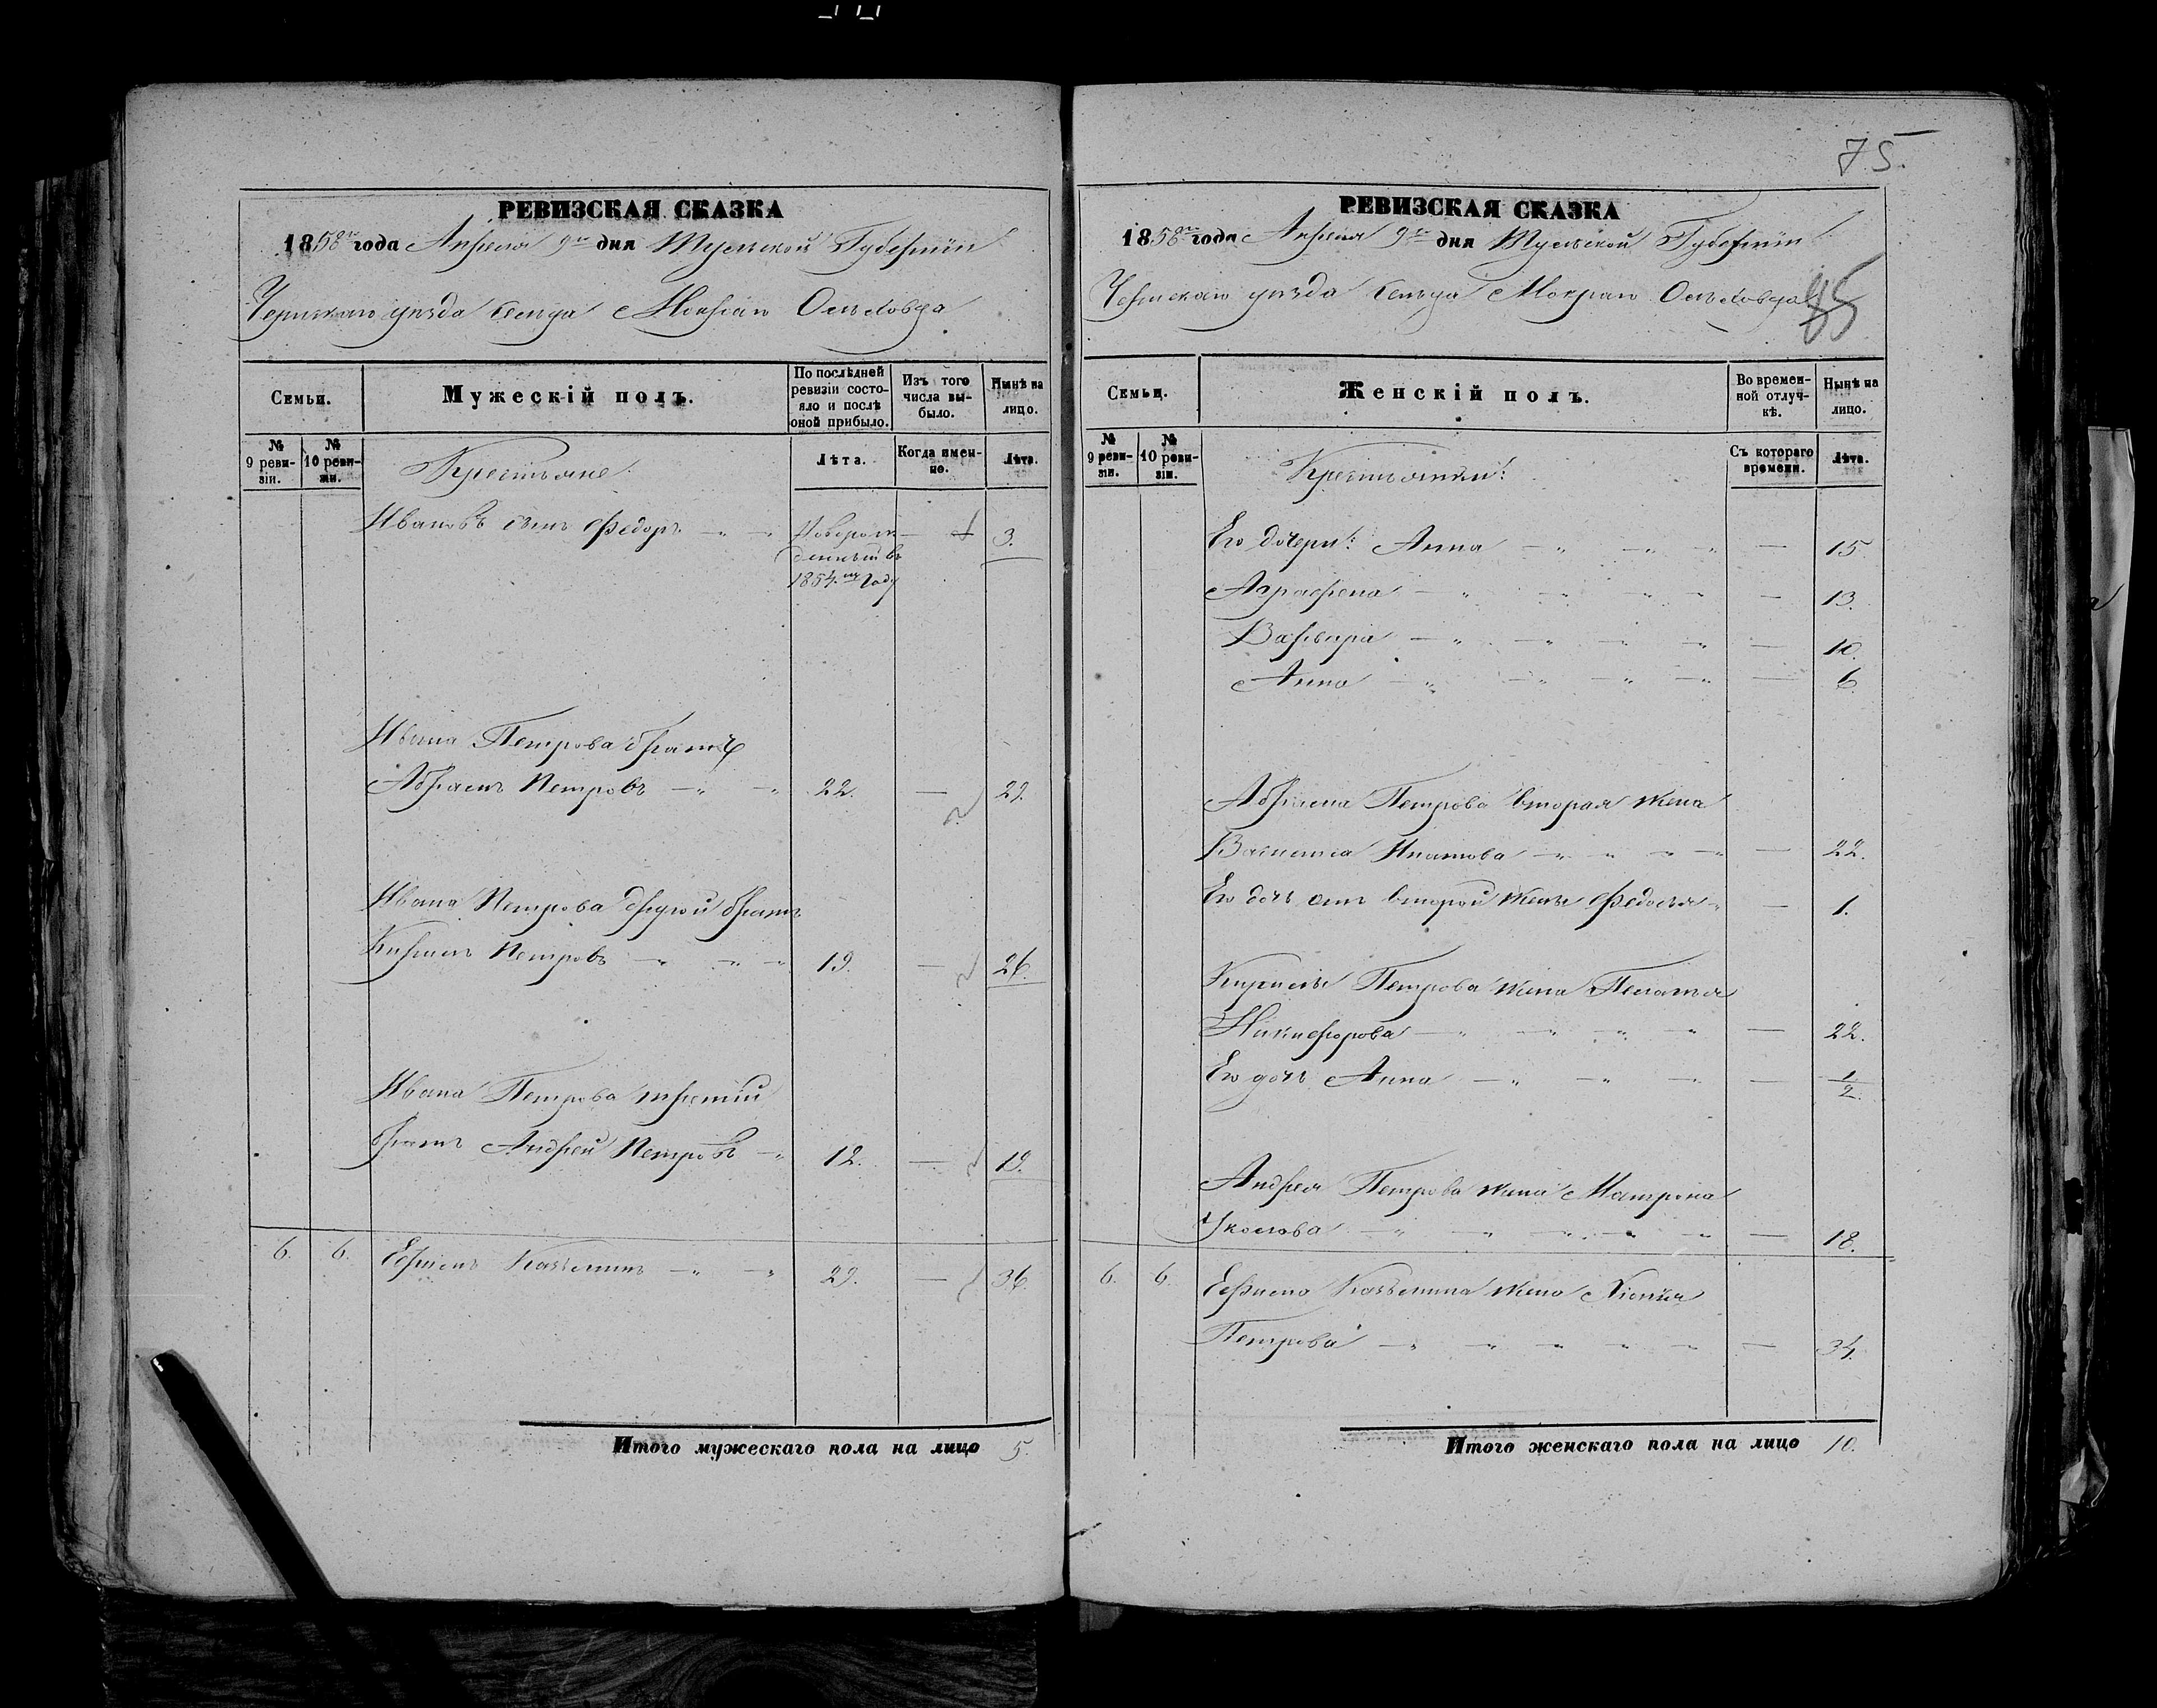 75.
РЕВИЗСКАЯ СКАЗКА
1858го года Апреля 9го дня Тульской Губернiи
Чернскаго уѣзда сельца Мокраго
85
Семьи.
Мужескiй полъ.
По послѣдней ревизiи состояло и послѣ оной прибыло.
Изъ того числа выбыло.
Нынѣ на лицо.
№ 9 ревизiи.
№ 10 ревизiи.
Крестьяне:
Лѣта.
Когда именно.
Лѣта.
Ивановъ сынъ Федоръ Новорож- 3.
денный въ
1854.мъ Году
Ивана Петрова братъ
Абрамъ Петровъ 22. — 29.
Ивана Петрова другой братъ
Кирилъ Петровъ 19. — 26.
Ивана Петрова третiй
братъ Андрей Петровъ 12. — 19.
6. 6. Ефимъ 29. — 36.
Итого мужескаго пола на лицо 5.
РЕВИЗСКАЯ СКАЗКА
1858го года Апреля 9го дня Тульской Губернiи
Чернскаго уѣзда сельца Мокраго
Семьи.
Женскiй полъ.
Во временной отлучкѣ.
Нынѣ на лицо.
№ 9 ревизiи.
№ 10 ревизiи.
Крестьянки:
Съ котораго времени.
Лѣта.
Его дочери: Анна — 15.
Аграфена — 13.
Варвара — 10.
Анна — 6.
Абрама Петрова вторая жена
Ипатова — 22.
Его дочь отъ второй жены Федосья — 1.
Кирилы Петрова жена Пелагья
Никифорова — 22.
Его дочь Анна — 1/2.
Андрея Петрова жена Матрена
— 18.
6. 6. Ефима жена
Петрова — 34.
Итого женскаго пола на лицо 10.